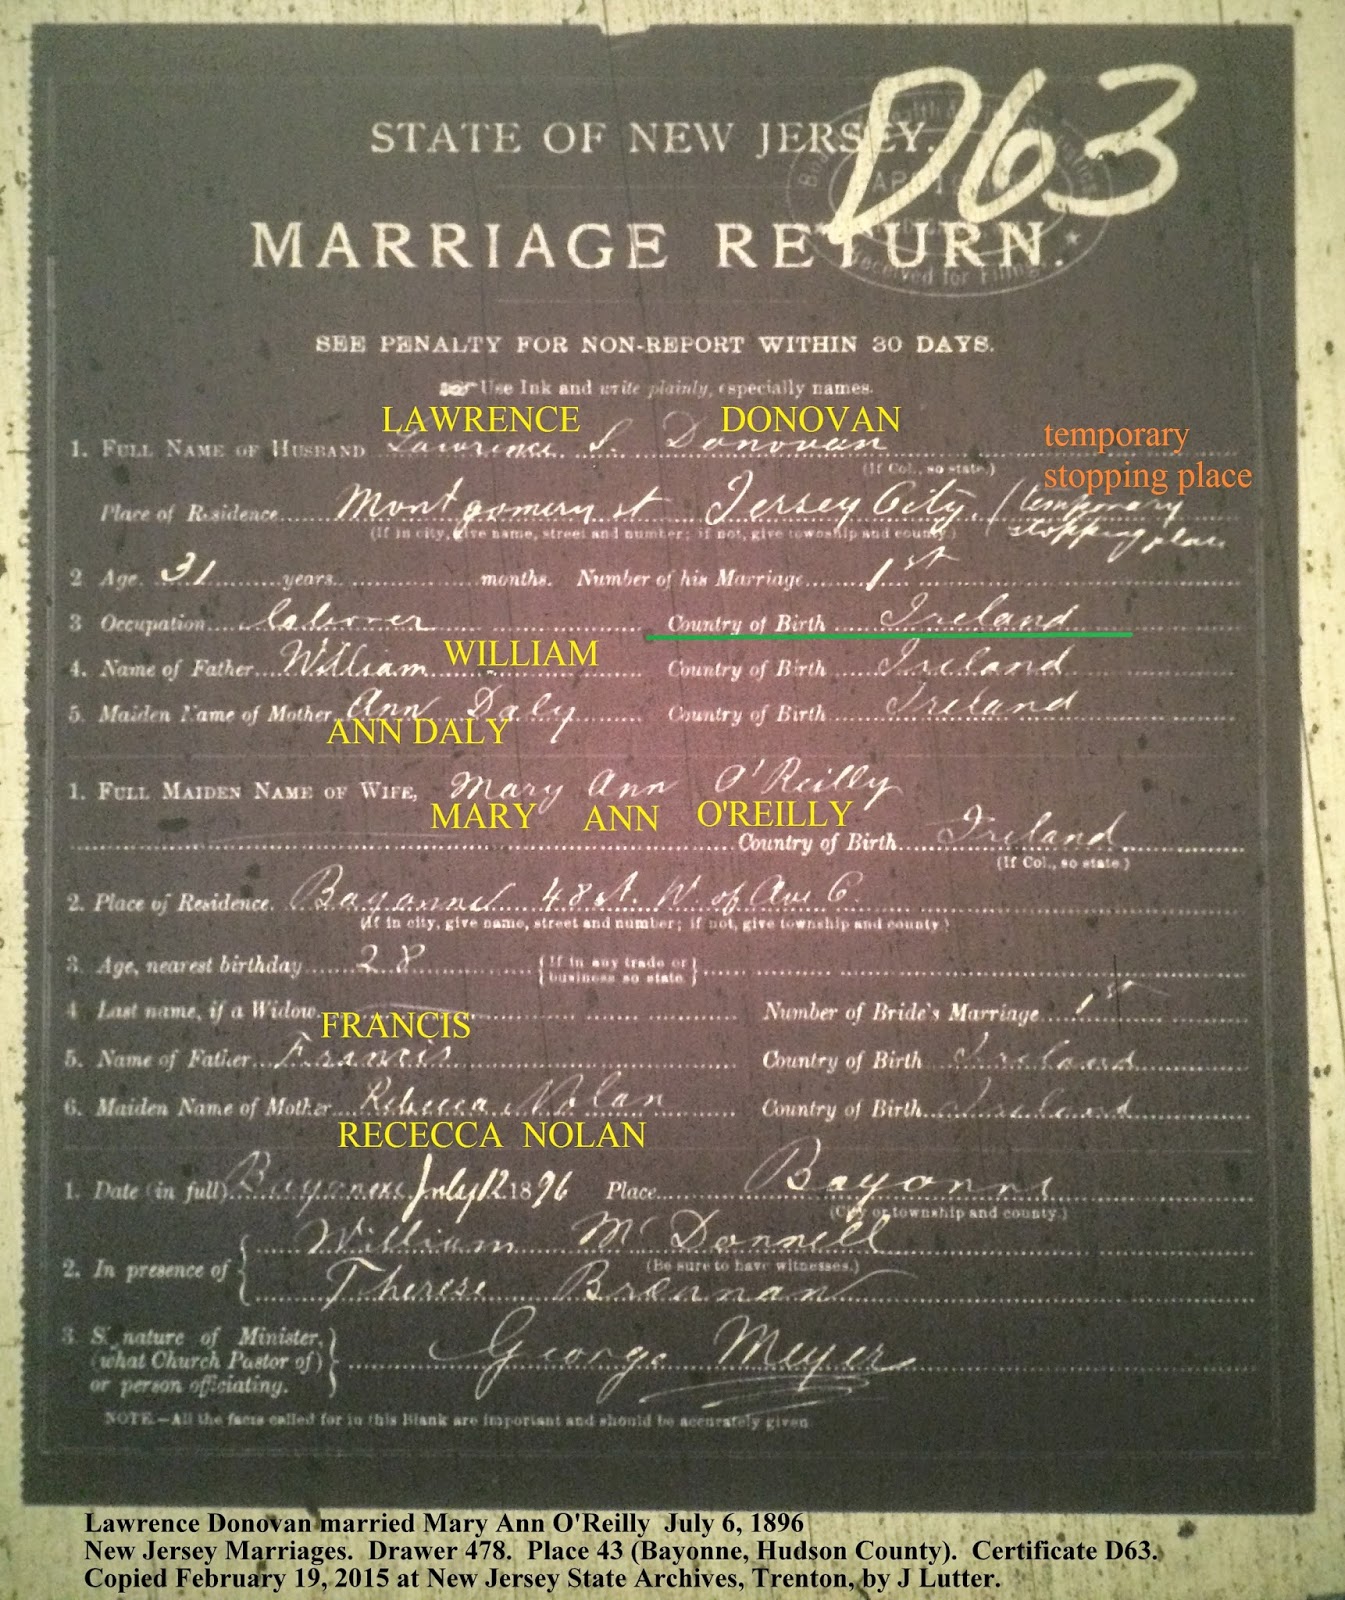 D63
STATE OF NEW JERSEY.
MARRIAGE RETURN.
Received for Filing
SEE PENALTY FOR NON-REPORT WITHIN 30 DAYS.
Use Ink and write plainly, especially names.
LAWRENCE DONOVAN
1. FULL NAME OF HUSBAND Lawrence S. Donovan
temporary
stopping place
(If Col., so state.)
Place of Residence Montgomery st Jersey City (temporary
stopping place
(If in city, give name, street and number; if not, give township and county.)
2 Age. 31 years months. Number of his Marriage 1st
3 Occupation Laborer Country of Birth Ireland
4. Name of Father William WILLIAM Country of Birth Ireland
5. Maiden Name of Mother Ann Daly Country of Birth Ireland
ANN DALY
1. FULL MAIDEN NAME OF WIFE, Mary Ann O'Reilly
MARY ANN O'REILLY
Country of Birth Ireland
(If Col., so state.)
2. Place of Residence. Bayonne 48 st. W. of Ave C.
(If in city, give name, street and number; if not, give township and county.)
3. Age, nearest birthday 28 {If in any trade or business so state.}
4 Last name, if a Widow Number of Bride's Marriage 1st
FRANCIS
5. Name of Father Francis Country of Birth Ireland
6. Maiden Name of Mother Rebecca Nolan Country of Birth Ireland
RECECCA NOLAN
1. Date (in full) Bayonne July 12 1896 Place Bayonne
(City or township and county.)
William McDonnell
2. In presence of (Be sure to have witnesses.)
Therese Brennan
3 Signature of Minister,
(what Church Pastor of) George Meyer
or person officiating.
NOTE.—All the facts called for in this Blank are important and should be accurately given
Lawrence Donovan married Mary Ann O'Reilly July 6, 1896
New Jersey Marriages. Drawer 478. Place 43 (Bayonne, Hudson County). Certificate D63.
Copied February 19, 2015 at New Jersey State Archives, Trenton, by J Lutter.